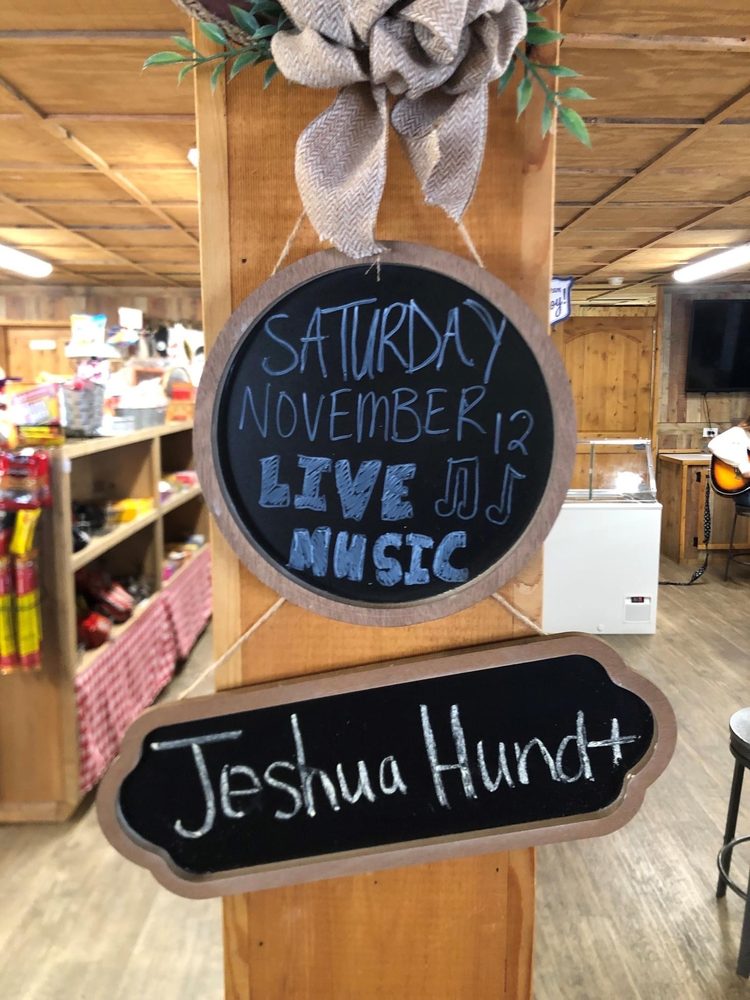 SATURDAY
NOVEMBER 12
LIVE
MUSIC
Jeshua Hundt